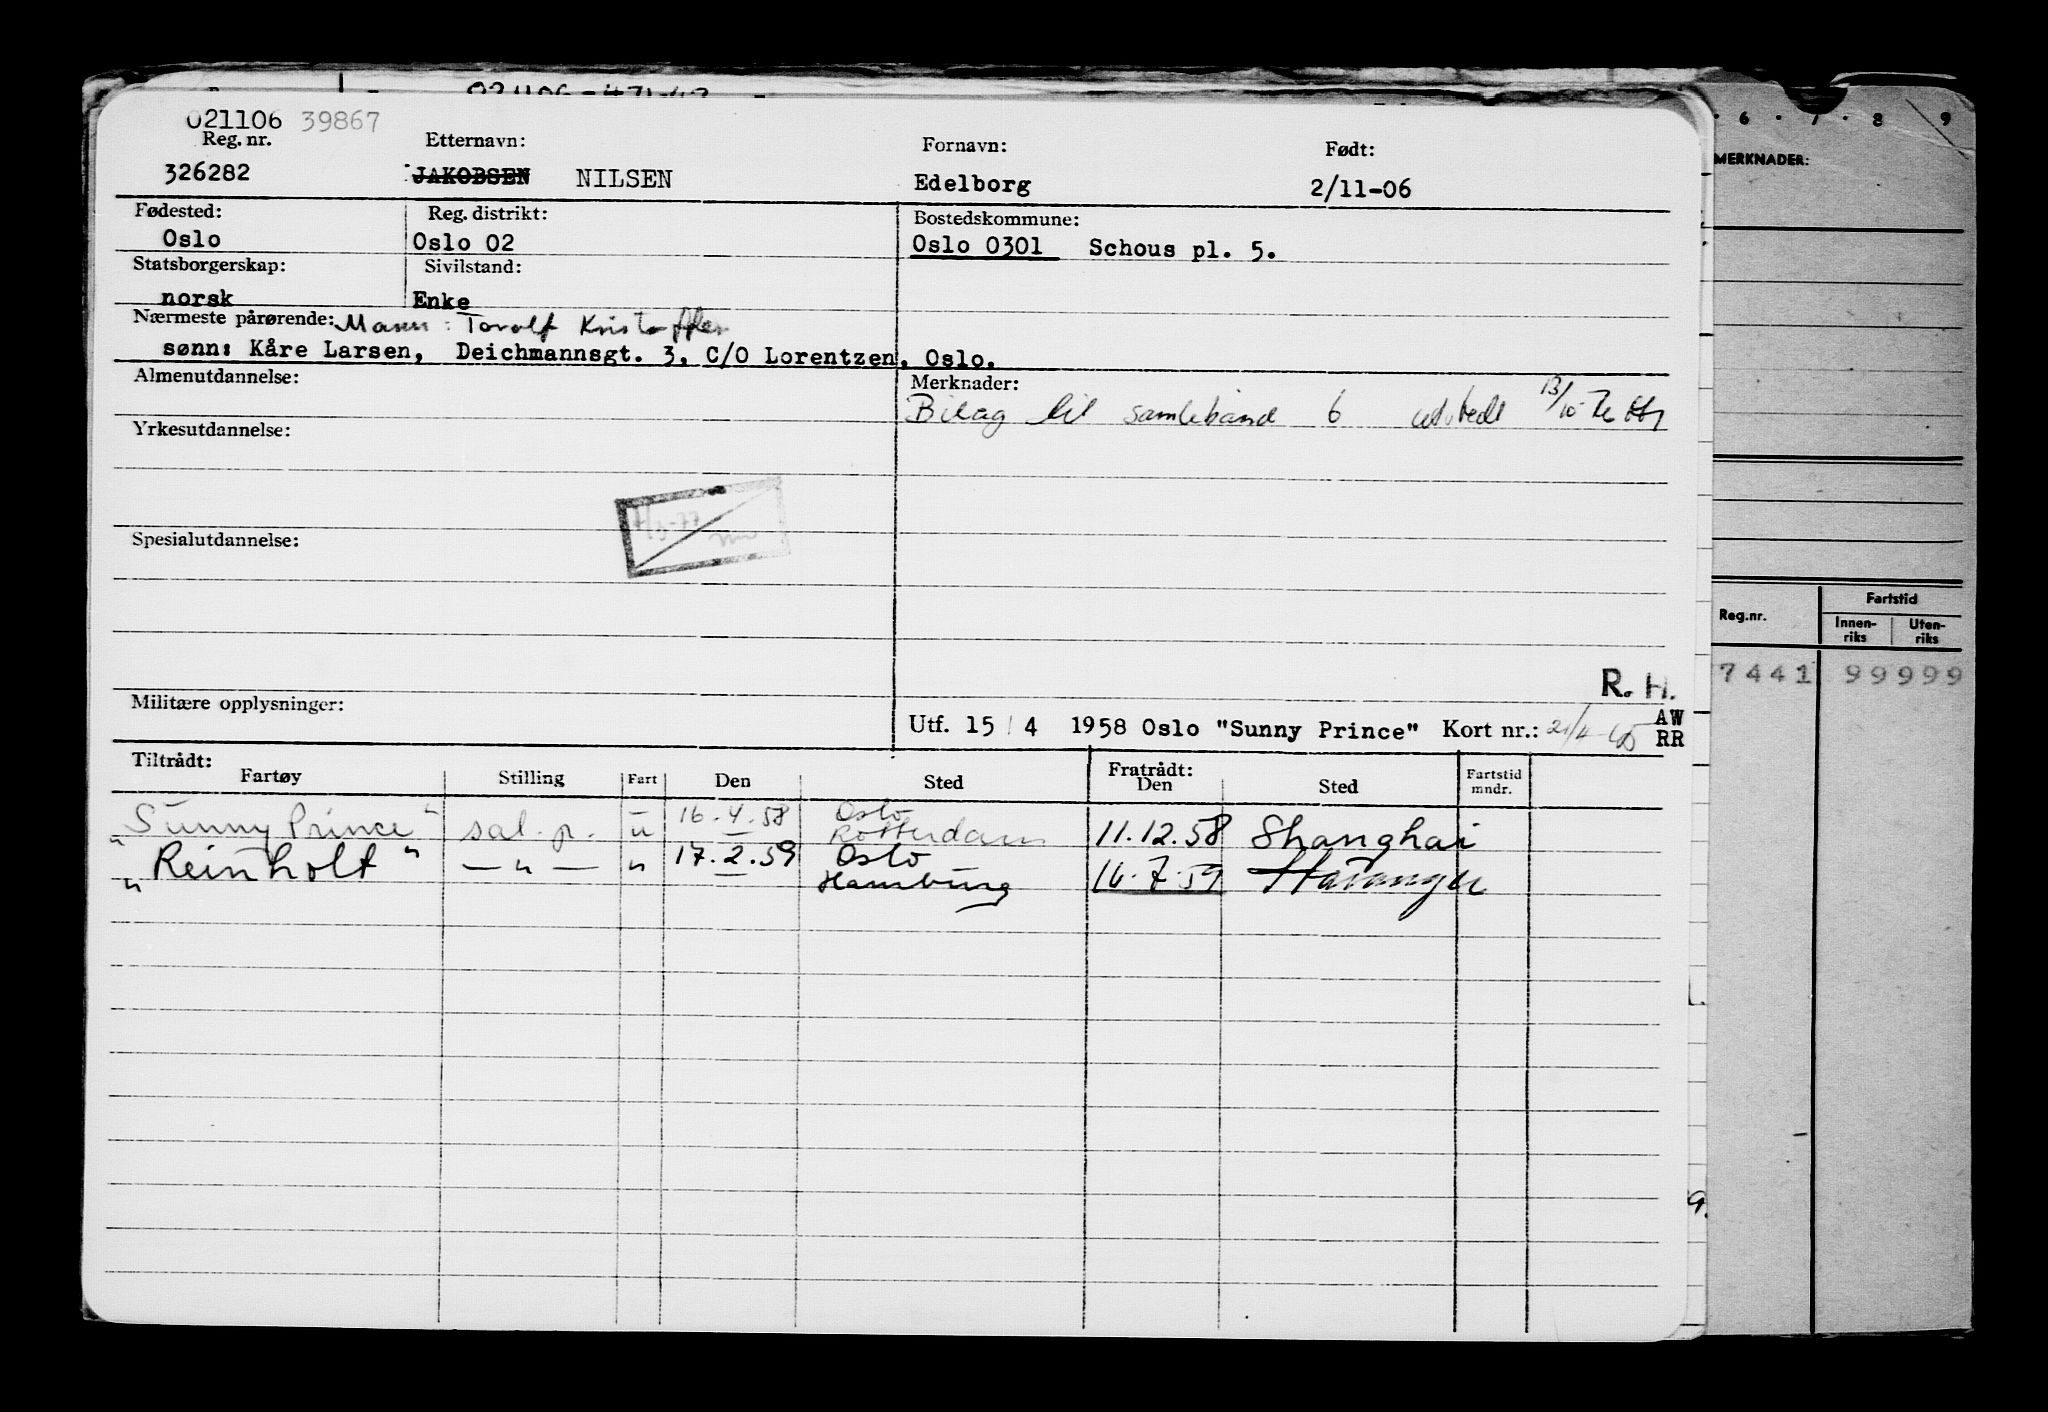 021106 39867
Reg. nr. Etternavn: Fornavn: Født:
326282 JAKOBSEN NILSEN Edelborg 2/11-06
Fødested: Reg. distrikt: Bostedskommune:
Oslo Oslo 02 Oslo 0301 Schous pl. 5.
Statsborgerskap: Sivilstand:
norsk Enke
Nærmeste pårørende: Mann: Torolf Kristoffer
sønn: Kåre Larsen, Deichmannsgt. 3, C/O Lorentzen, Oslo.
Almenutdannelse: Merknader:
Bilag til samlebånd 6 utstedt 13/10-76
Yrkesutdannelse:
Spesialutdannelse:
R. H.
Militære opplysninger:
Utf. 15/4 1958 Oslo "Sunny Prince" Kort nr.: AW
RR
Tiltrådt: Fratrådt:
Fartøy Stilling Fart Den Sted Den Sted Fartstid mndr.
"Sunny Prince" sal. p. u 16.4.58 Oslo Rotterdam 11.12.58 Shanghai
"Reinholt" — " — " 17.2.59 Oslo Hamburg 16.7.59 Stavanger
6 . 7 . 8 9
MERKNADER:
Reg.nr. Fartstid
Innen-riks Uten-riks
7441 99999